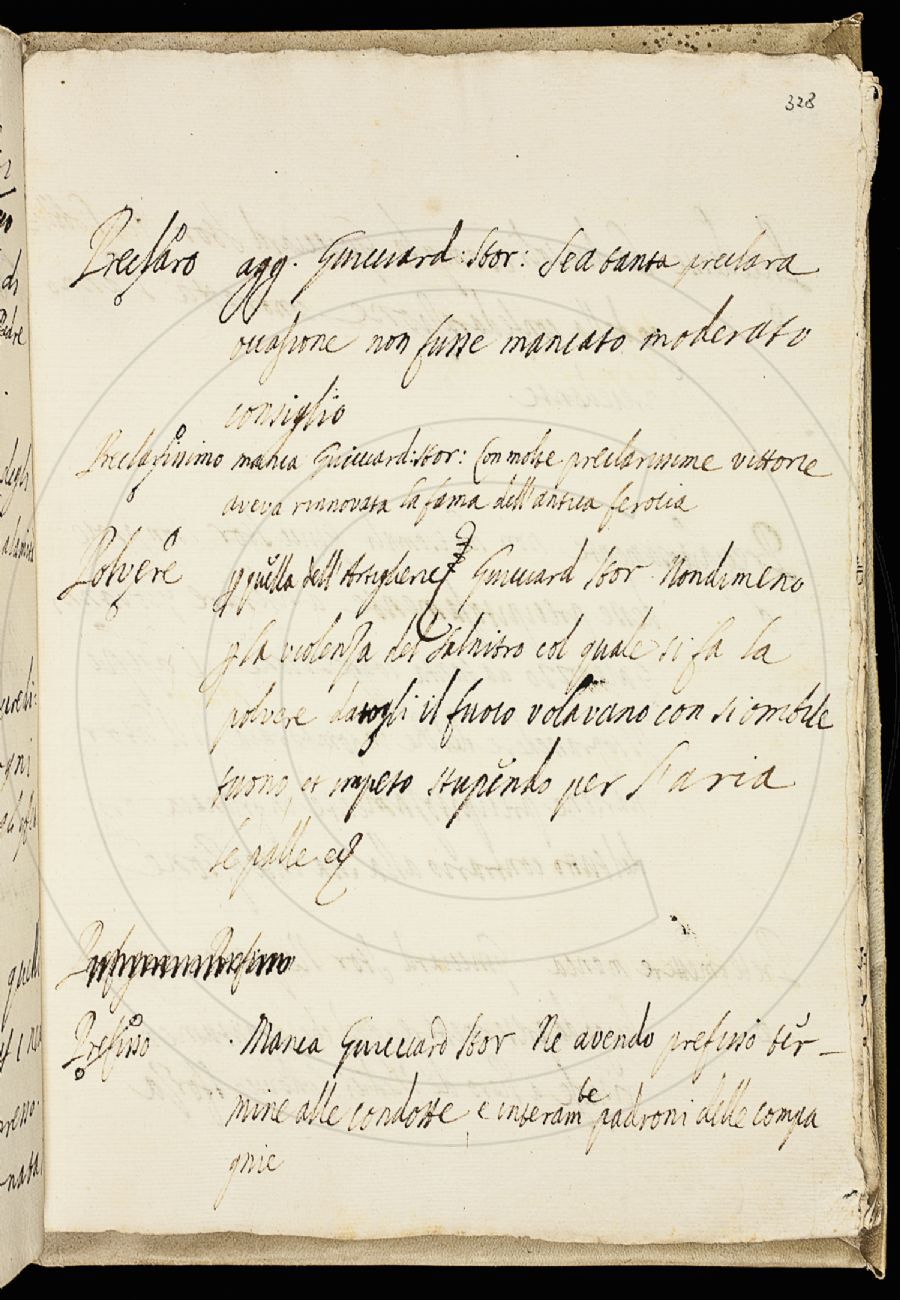 328
Preclaro agg. Guicciard: Stor: Se a tanta preclara
occasione non fusse mancato moderato
consiglio
Preclarissimo manca Guicciard: Stor: Con molte preclarissime vittorie
aveva rinnovata la fama dell'antica ferocia
Polvere p quella dell'Artiglierie Guicciard Stor. Nondimeno
p la violenza del Salnitro col quale si fa la
polvere datogli il fuoco volavano con si orribile
tuono, et impeto stupendo per l'aria
le palle
Prefisso Manca Guicciard Stor Ne avendo prefisso ter-
mine alle condotte, e interamte padroni delle compa
gnie